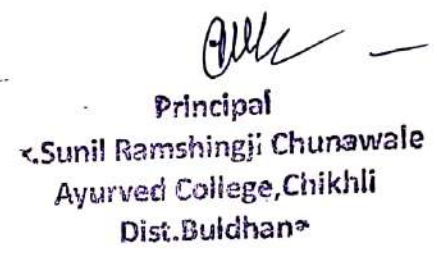 Principal
Sunil Ramshingji Chunawale
Ayurved College,Chikhli
Dist.Buldhana